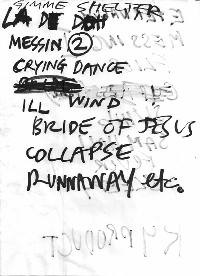 GIMME SHELTER
LA DE DAH
MESSIN 2
CRYING DANCE
ILL WIND
BRIDE OF JESUS
COLLAPSE
RUNNAWAY etc.